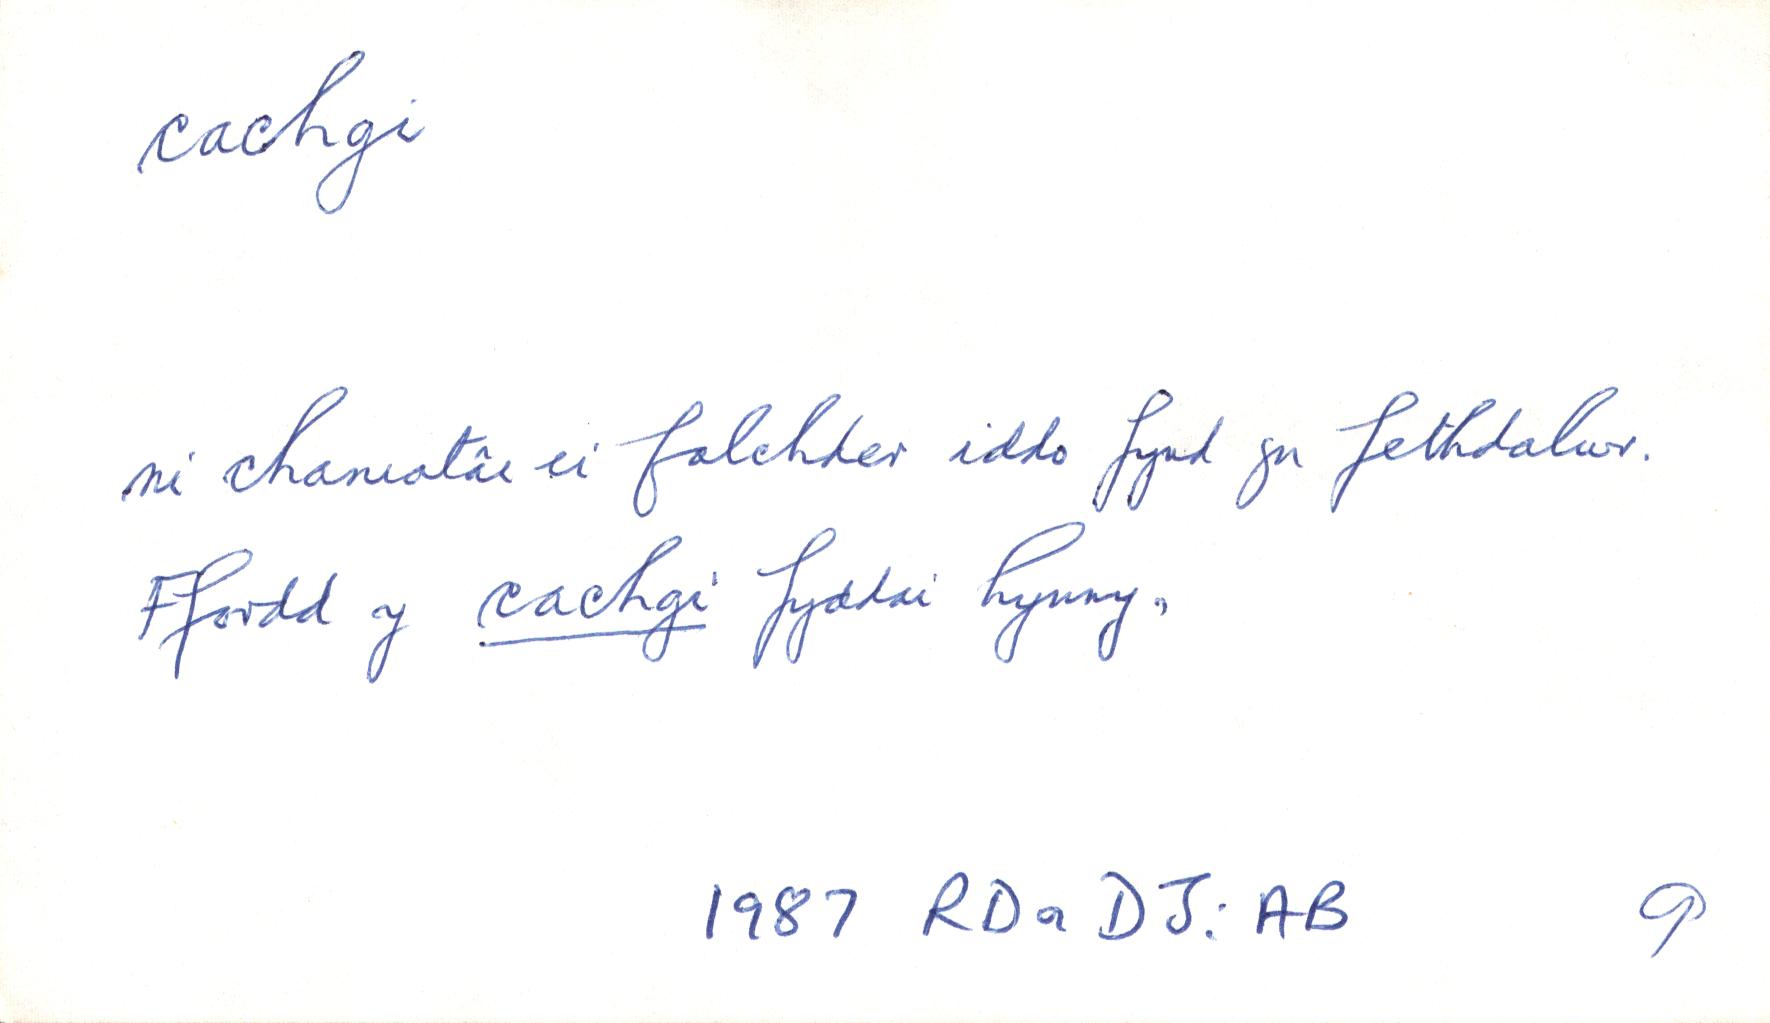 cachgi
ni chaniatâi ei falchder iddo fynd yn fethdalwr.
Ffordd y cachgi fyddai hynny.
1987 RD a DJ: AB